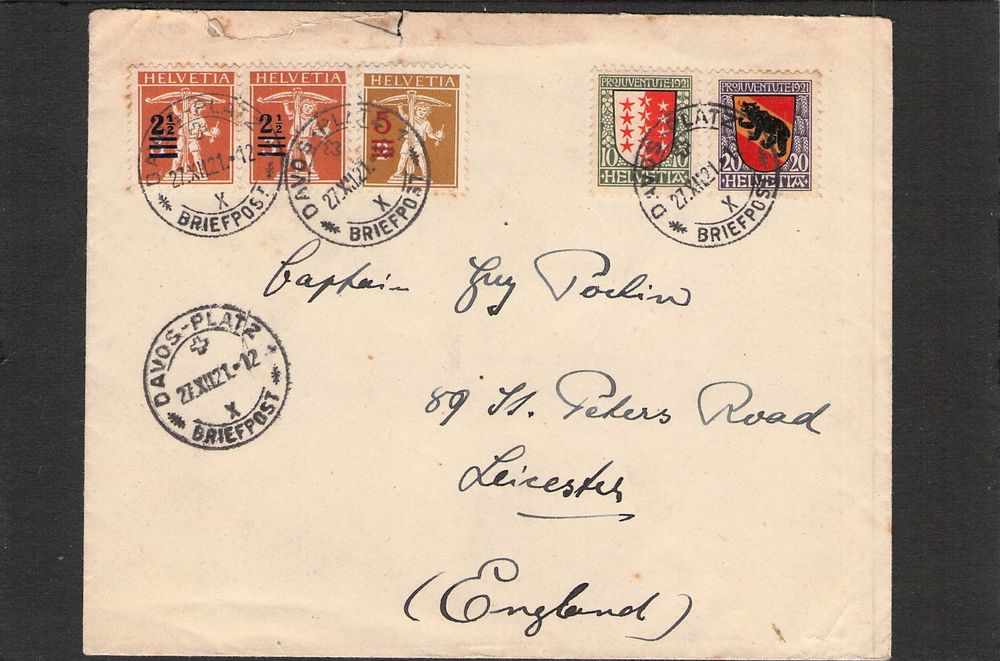 HELVETIA HELVETIA HELVETIA
2½ 2½ 5
PRO JUVENTUTE 1921 PRO JUVENTUTE 1921
10 10 20 20
HELVETIA HELVETIA
DAVOS-PLATZ
27.XII.21.-12
X
BRIEFPOST
DAVOS-PLATZ
27.XII.21.-12
X
BRIEFPOST
DAVOS-PLATZ
27.XII.21
X
BRIEFPOST
Captain Guy Pochin
DAVOS-PLATZ
27.XII.21.-12
X
BRIEFPOST
89 St. Peters Road
Leicester
(England)